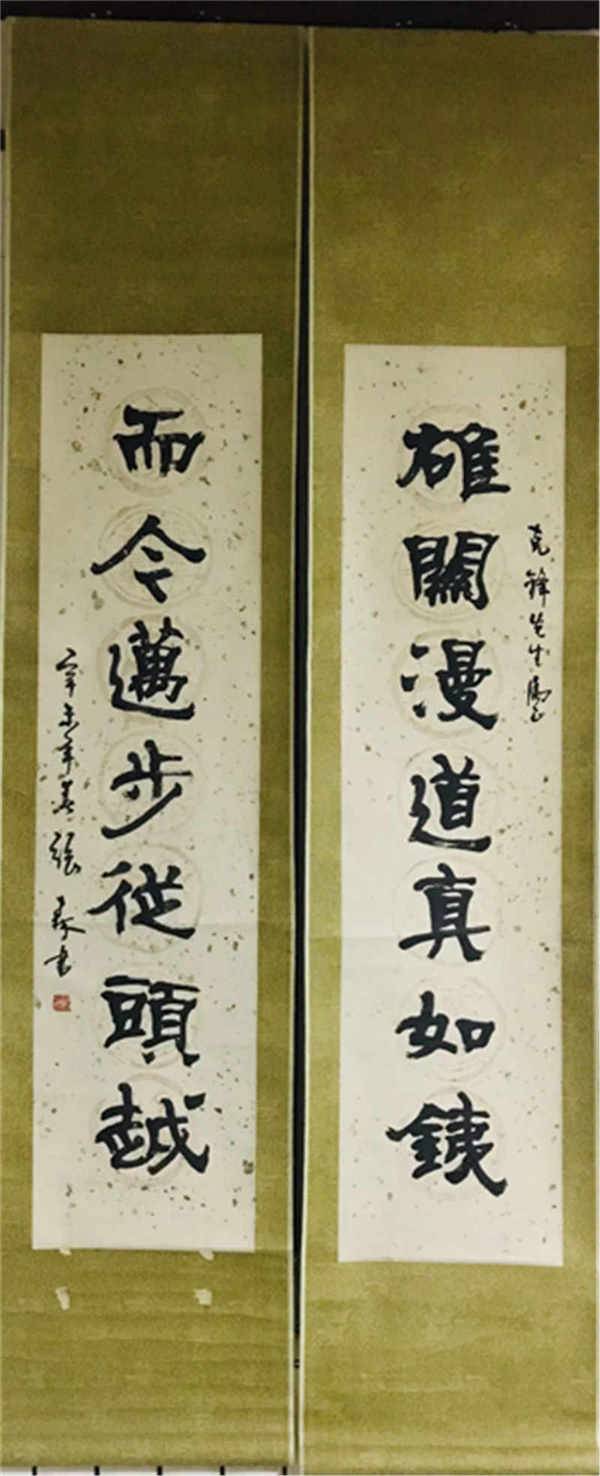 雄關漫道真如銕
克鋒先生屬正
而今邁步從頭越
辛未年春張森書